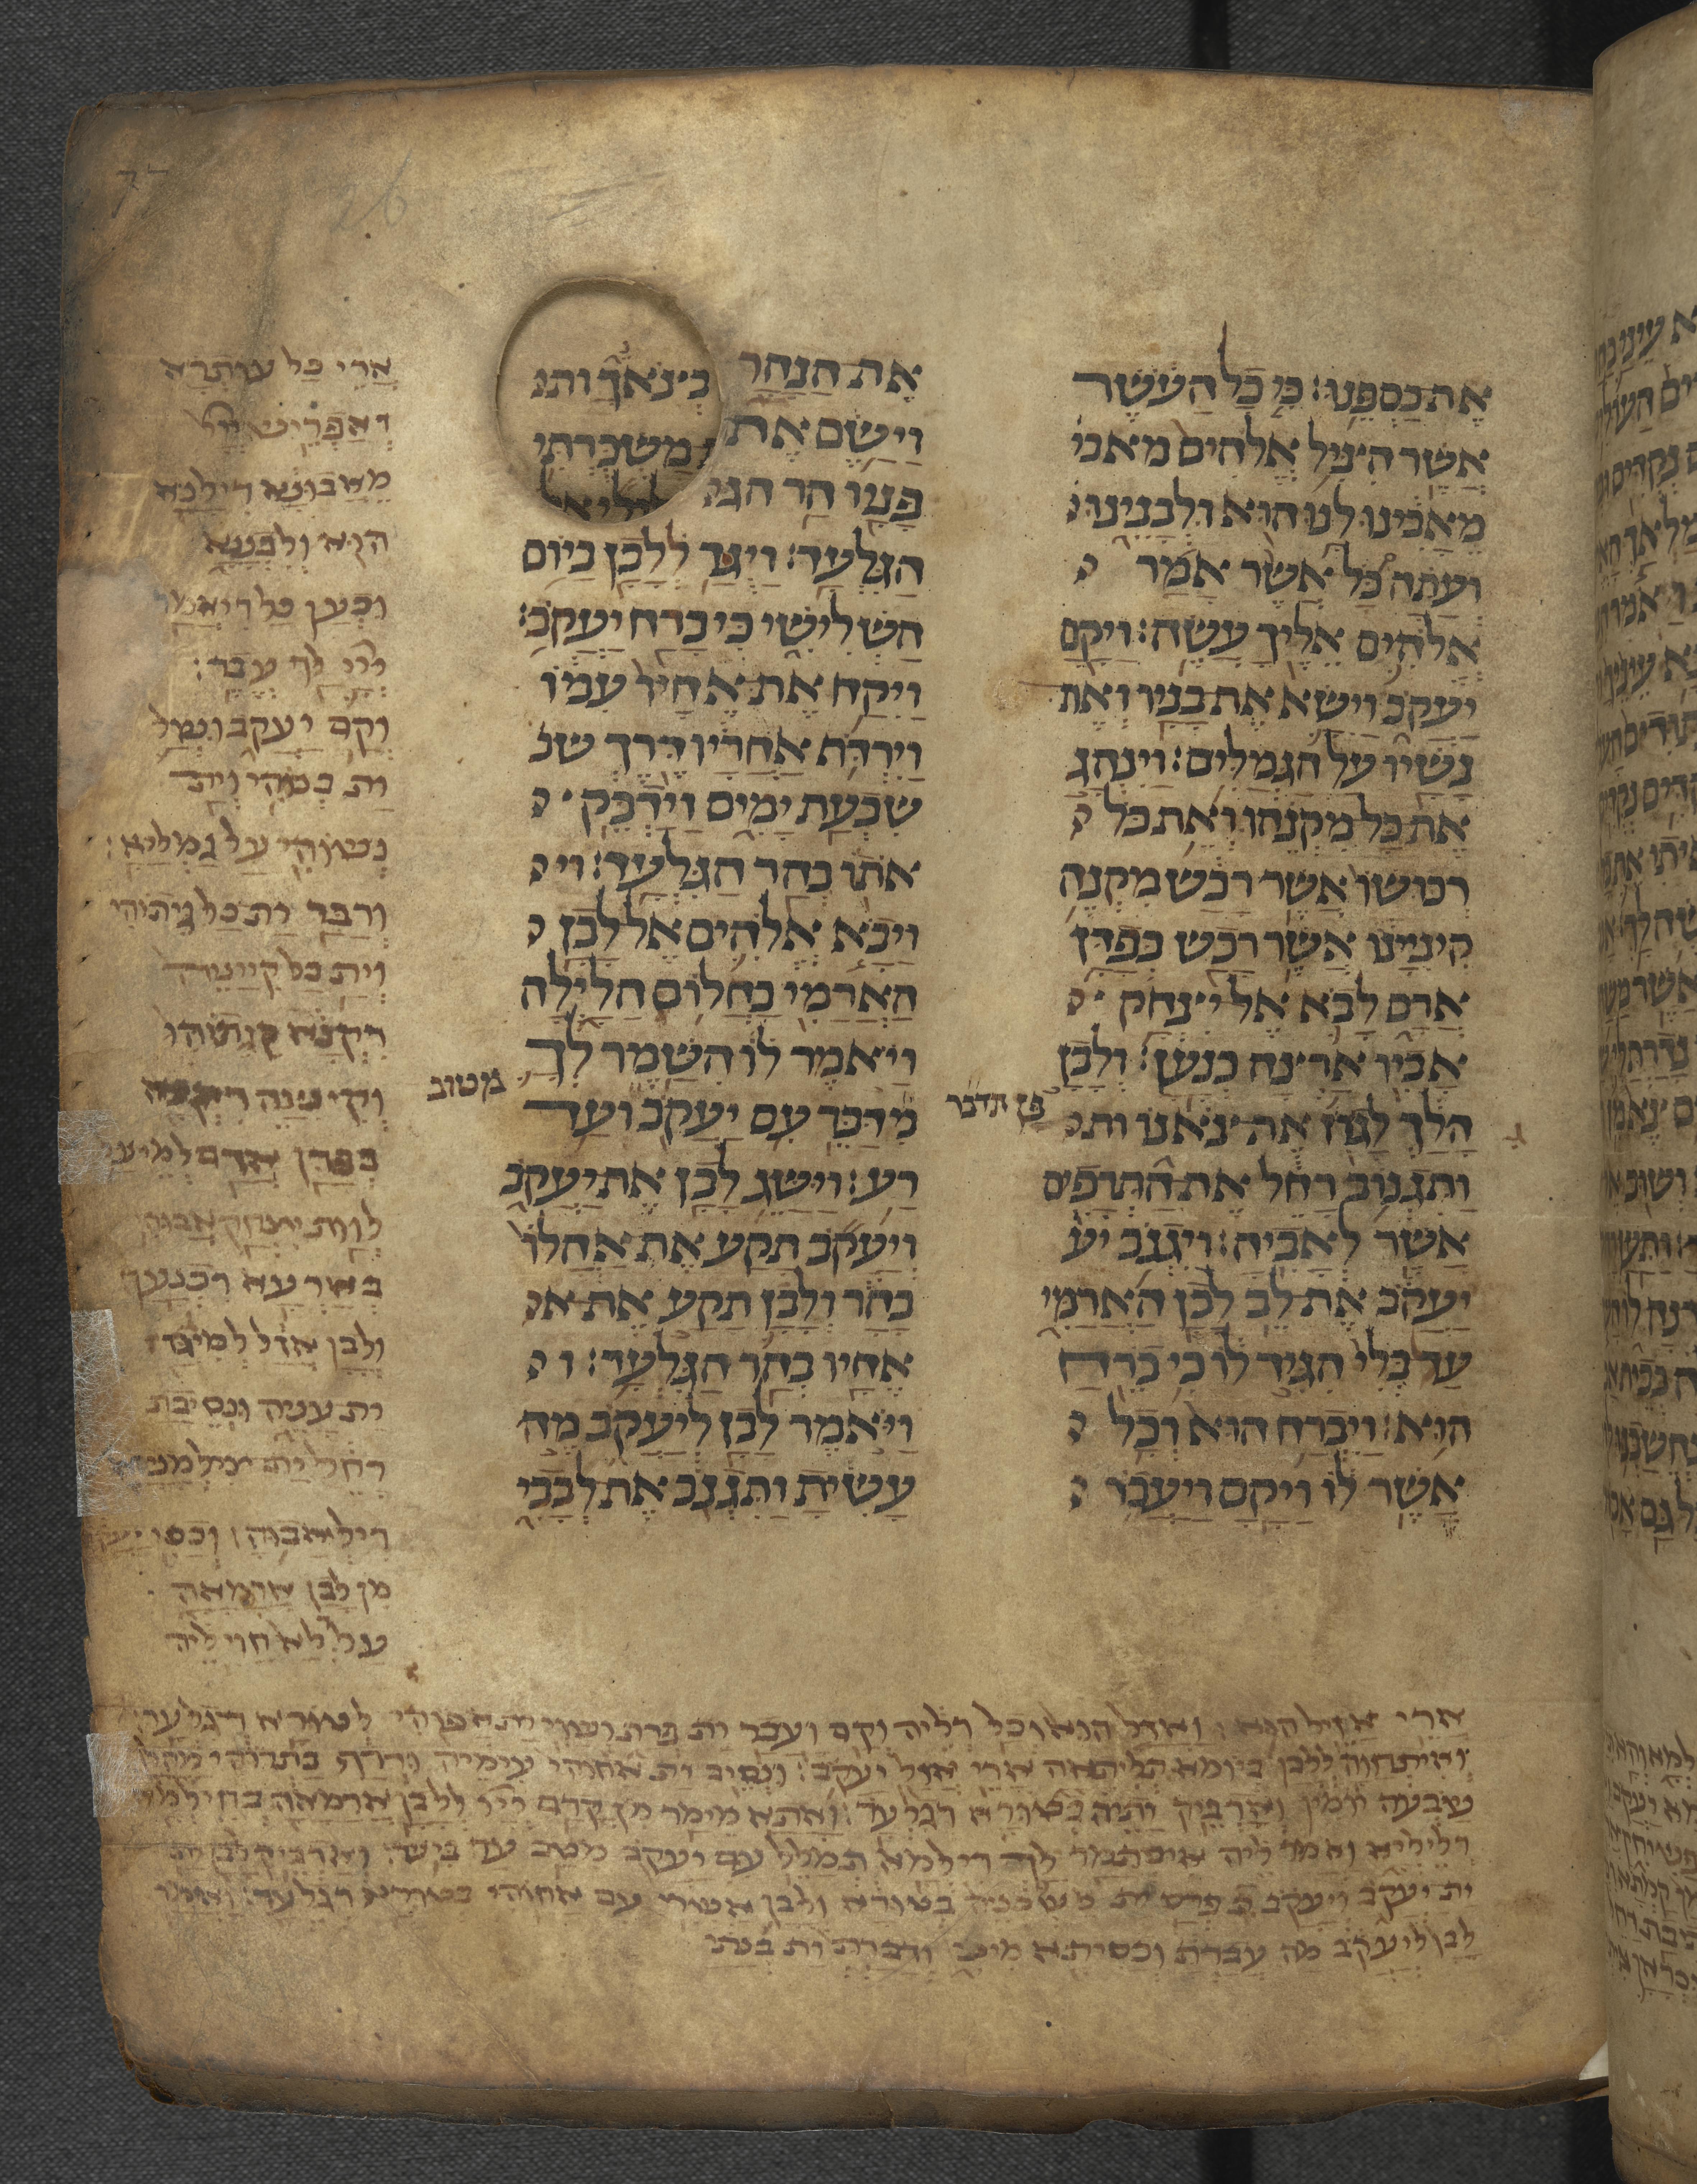 את כספנו: כי כל העשר
אשר הציל אלהים מאבי
מאבינו לנו הוא ולבנינו
ועתה כל אשר אמר
אלהים אליך עשה: ויקם
יעקב וישא את בניו ואת
נשיו על הגמלים: וינהג
את כל מקנהו ואת כל
רכושו אשר רכש מקנה
קינינו אשר רכש בפדן
ארם לבא אל יצחק
אביו ארצה כנען: ולבן
הלך לגזז את צאנו ות
ותגנב רחל את התרפים
אשר לאביה: ויגנב יע
יעקב את לב לבן הארמי
על בלי הגיד לו כי ברח
הוא: ויברח הוא וכל
אשר לו ויקם ויעבר
את הנהר
וישם את
פניו הר הגל
הגלעד: ויגד ללבן ביום
השלישי כי ברח יעקב:
ויקח את אחיו עמו
וירדף אחריו דרך שב
שבעת ימים וידבק
אתו בהר הגלעד: וי
ויבא אלהים אל לבן
הארמי בחלום הלילה
ויאמר לו השמר לך
פן תדבר
מדבר עם יעקב ועד
מטוב
רע: וישג לבן את יעקב
ויעקב תקע את אהלו
בהר ולבן תקע את א
אחיו בהר הגלעד: ו
ויאמר לבן ליעקב מה
עשית ותגנב את לבבי
צאנך ותו
משכרתי
ארי כל עותרא
דאפריש יי
מאבונא דילנא
הוא ולבננא
וכען כל דיאמר
יי לך עבד:
וקם יעקב ונטל
ית בנוהי וית
נשוהי על גמליא:
ודבר ית כל גיתוהי
וית כל קיינניה
דקנא קיתוהי
בפדן ארם למיעל
לות יצחק אבוהי
בארעא דכנען
ולבן אזל למיגז
ית עניה ונסיבת
דילאבוה: וכסי יעקב
מן לבן ארמאה
על דלא חוי ליה
ארי אזיל הוא: ואזל הוא וכל דליה וקם ועבר ית פרת ושוי ית אפוהי לטורא דגלעד:
ואיתחוה ללבן ביומא תליתאה ארי אזל יעקב: ודבר ית אחוהי עימיה ורדף בתרוהי מהלך
שבעה יומין ואדביק יתיה בטורא דגלעד: ואתא מימר מן קדם יי ללבן ארמאה בחילמא
דליליא ואמר ליה איסתמר לך דילמא תמליל עם יעקב מטב עד ביש: ואדביק לבן ית
ית יעקב ויעקב פרס ית משכניה בטורא ולבן אשרי עם אחוהי בטורא דגלעד: ואמר
לבן ליעקב מה עברת וכסיתא מיני ודברת ית בנתי